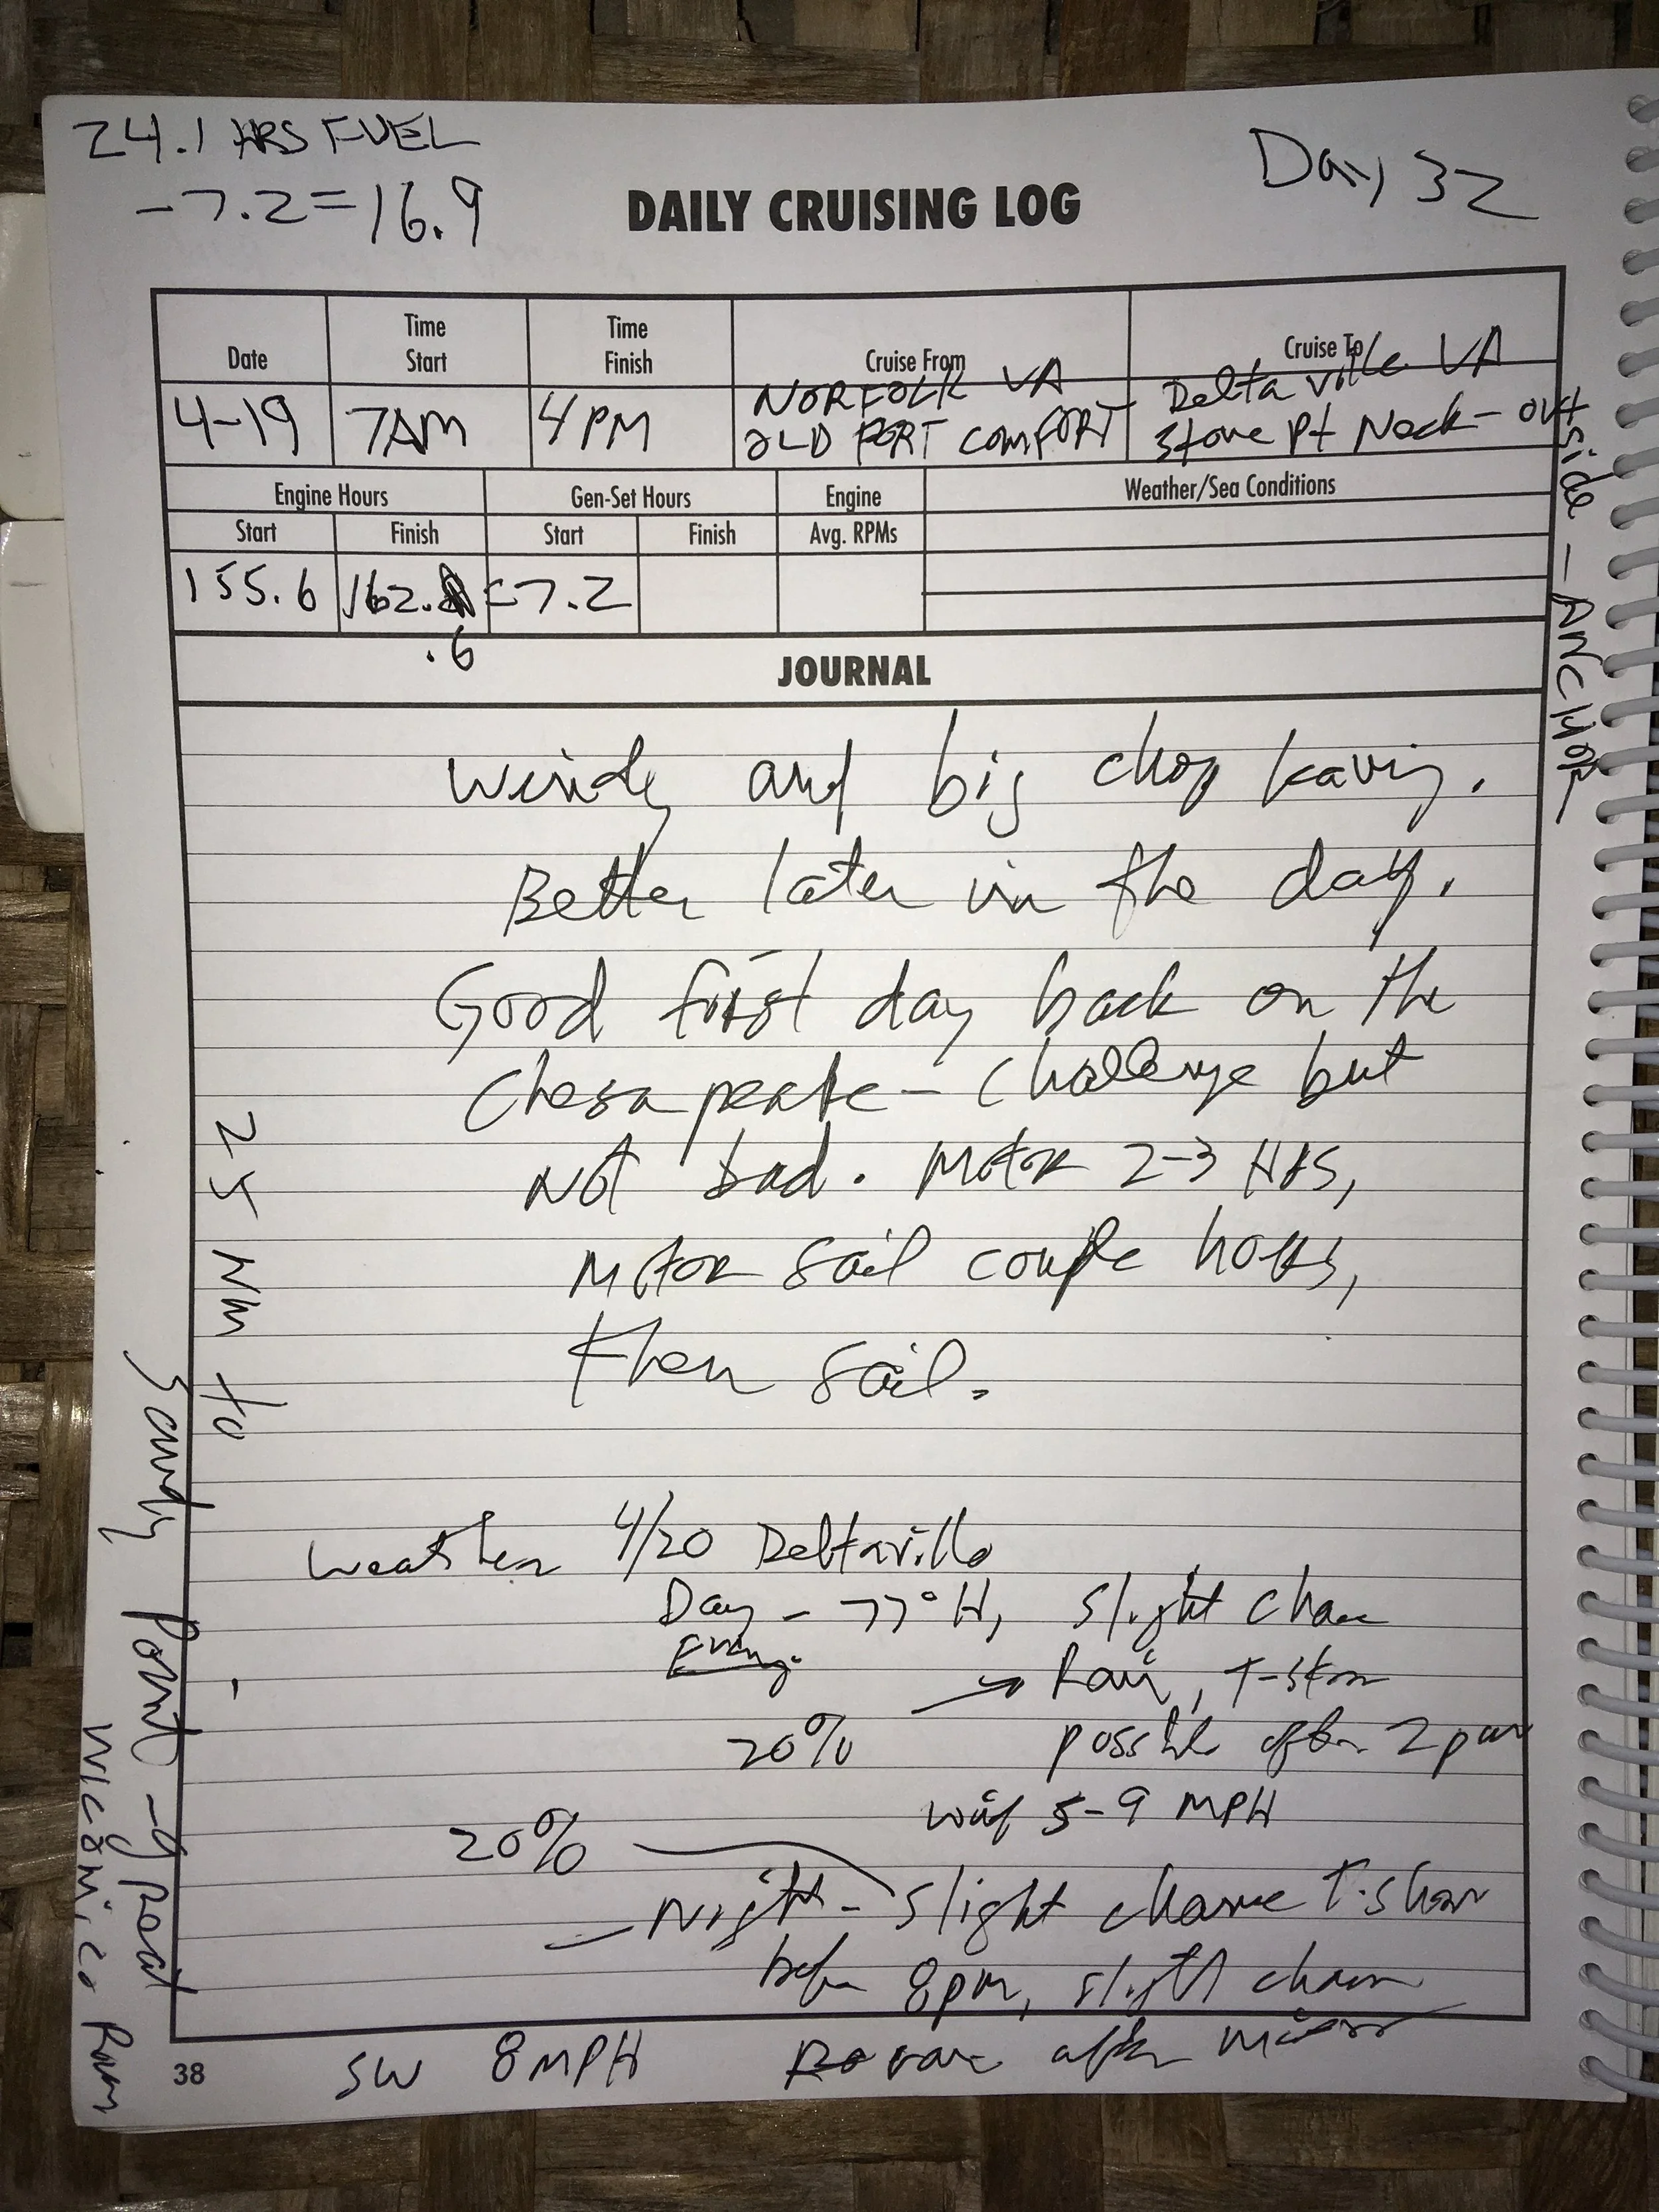 24.1 HRS FUEL
-7.2=16.9
Day 32
DAILY CRUISING LOG
Date
Time Start
Time Finish
Cruise From
Cruise To
4-19
7AM
4PM
NORFOLK VA
OLD PORT COMFORT
Deltaville VA
Stove Pt Neck - outside - ANCHOR
Engine Hours
Gen-Set Hours
Engine
Weather/Sea Conditions
Start
Finish
Start
Finish
Avg. RPMs
155.6
162.
.6
=7.2
JOURNAL
Windy and big chop leaving.
Better later in the day.
Good first day back on the
Chesapeake - challenge but
Not bad. Motor 2-3 HRS,
Motor sail couple hours,
then sail.
Weather 4/20 Deltaville
Day - 77° H, slight chance
Evening
→ Rain, T-storm
20%
possible after 2pm
wind 5-9 MPH
20%
- Night - slight chance T-storm
before 8pm, slight chance
after
SW 8MPH
38
25 NM to
Sandy Point - Great
Wicomico River